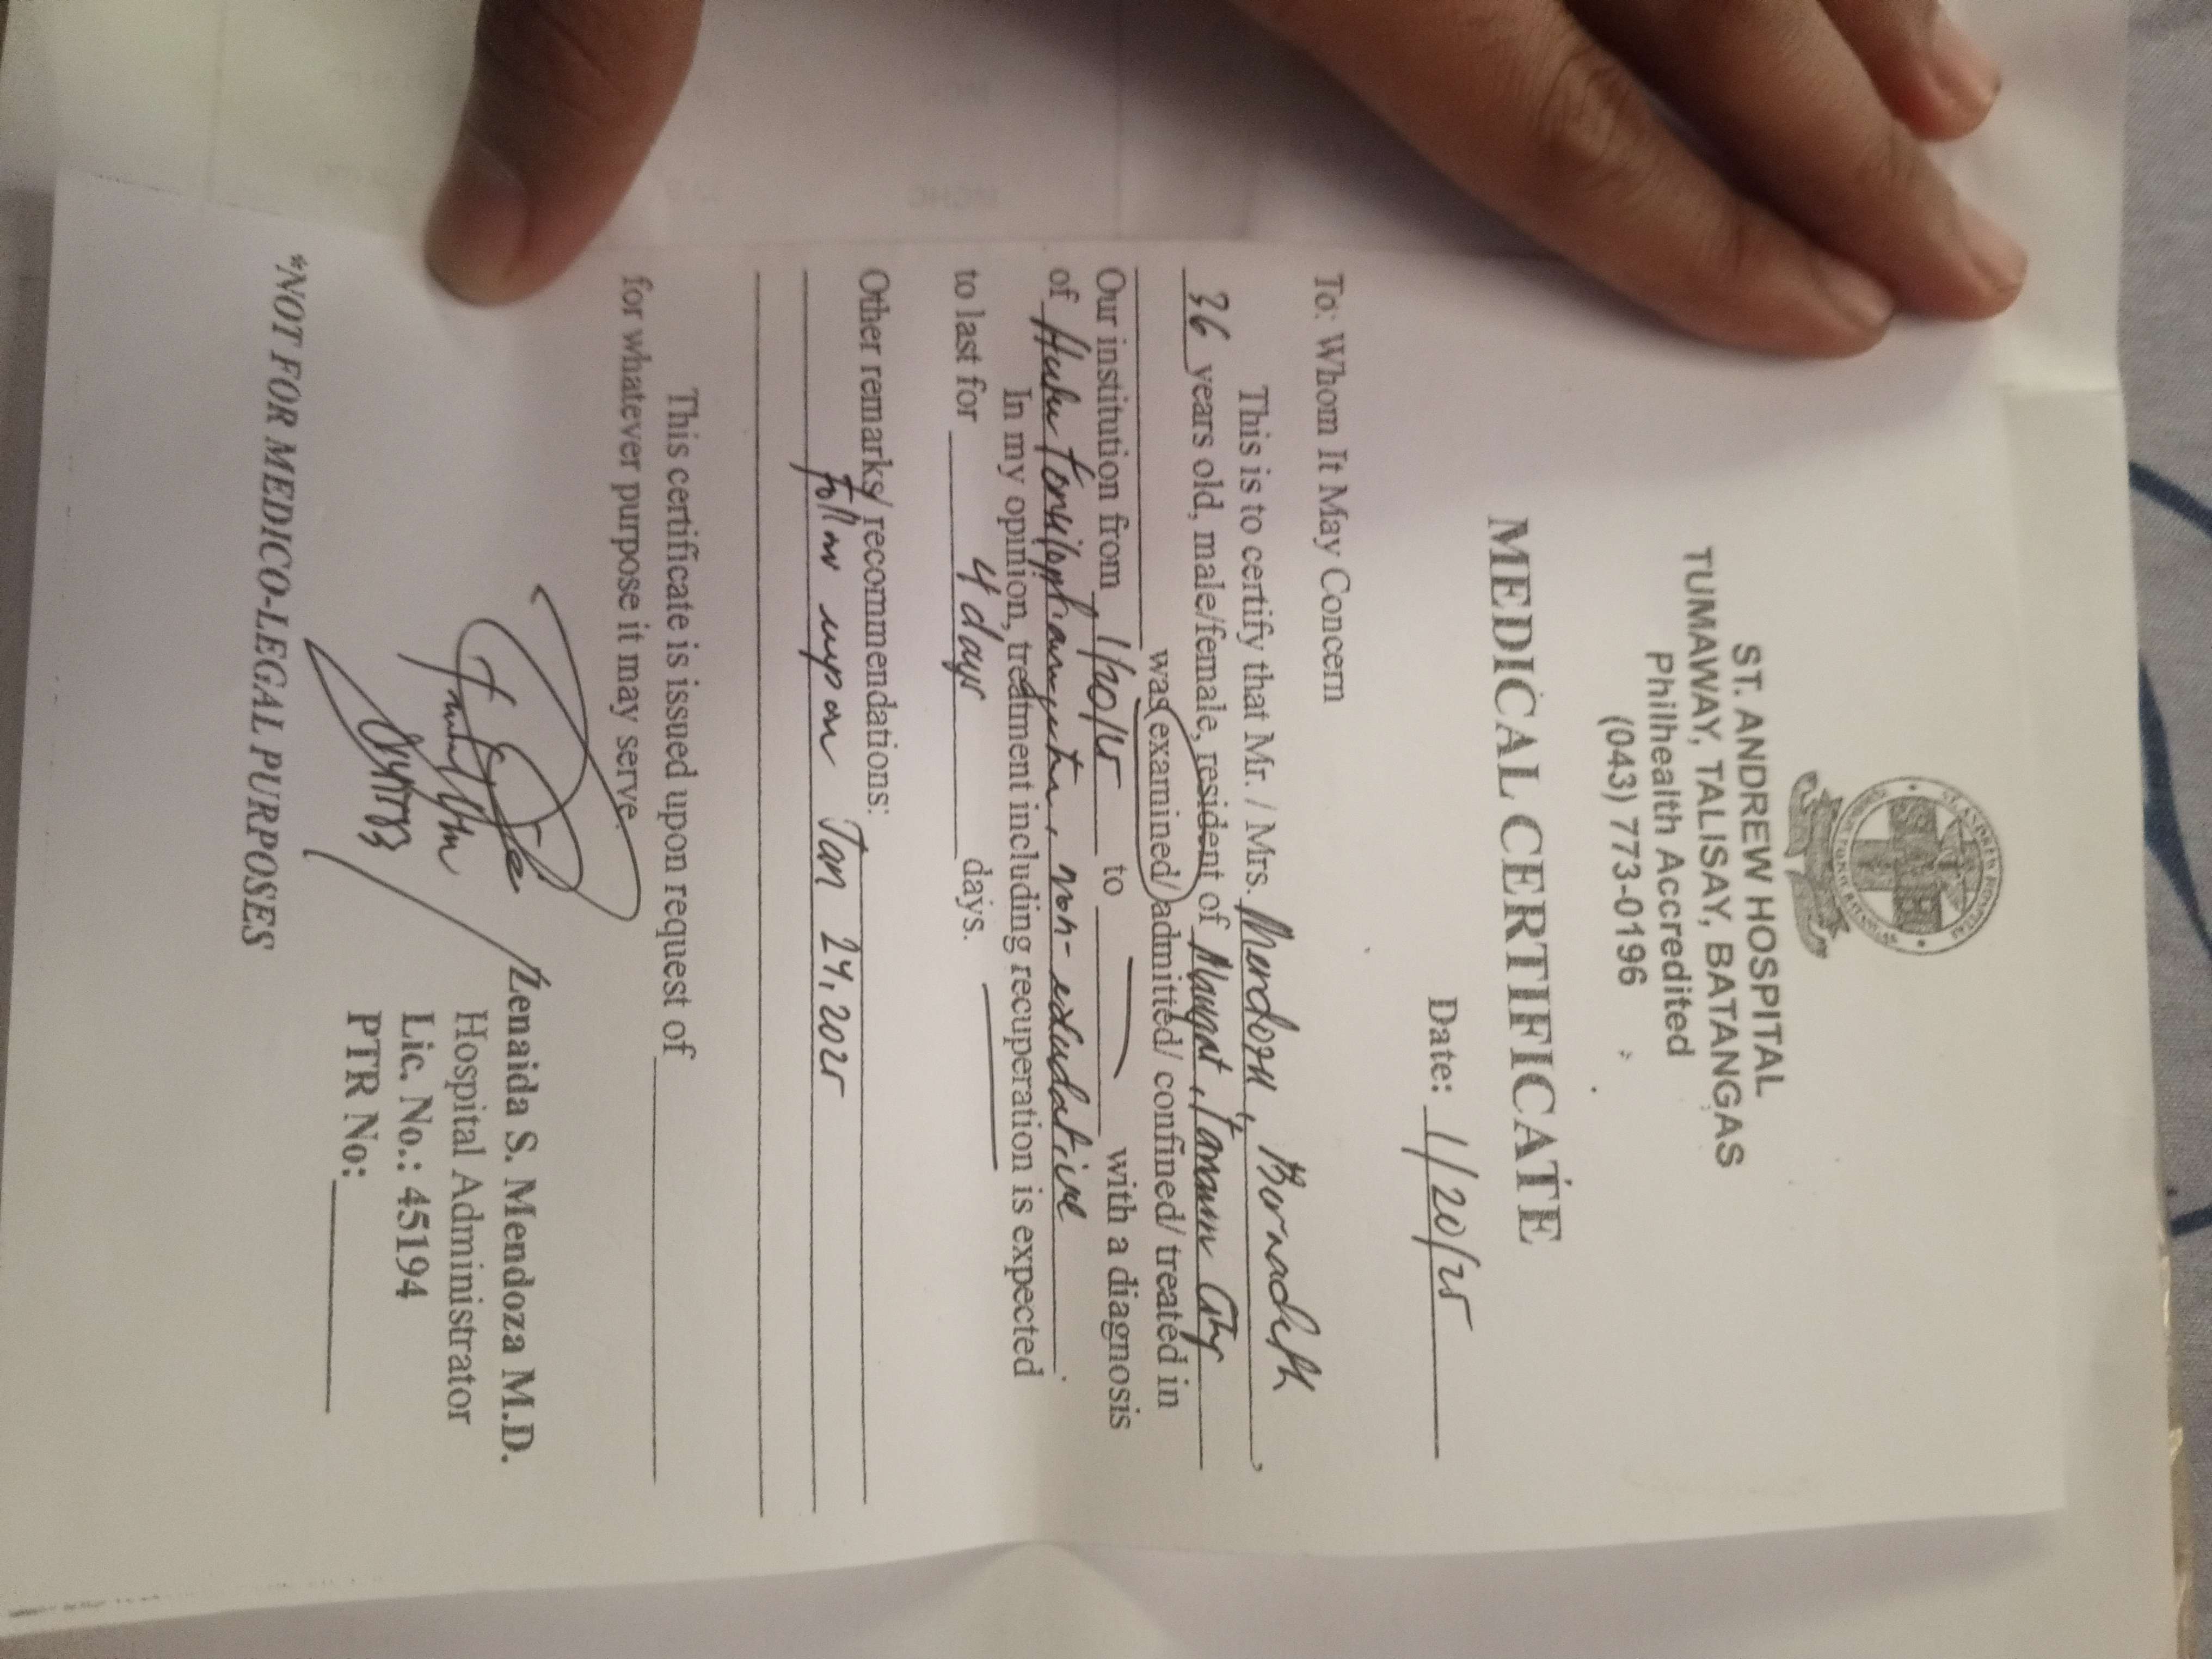 ST. ANDREW HOSPITAL
TUMAWAY, TALISAY, BATANGAS
Philhealth Accredited
(043) 773-0196
MEDICAL CERTIFICATE
Date: 1/20/25
To: Whom It May Concern
This is to certify that Mr. / Mrs. Mendoza, Bernadeth,
36 years old, male/female, resident of Tanauan City
was examined/ admitted/ confined/ treated in
Our institution from 1/20/25 to — with a diagnosis
of Acute tonsillopharyngitis, non-exudative.
In my opinion, treatment including recuperation is expected
to last for 4 days days.
Other remarks/ recommendations:
Follow up on Jan 24, 2025
This certificate is issued upon request of
for whatever purpose it may serve.
Zenaida S. Mendoza M.D.
Hospital Administrator
Lic. No.: 45194
PTR No:
*NOT FOR MEDICO-LEGAL PURPOSES